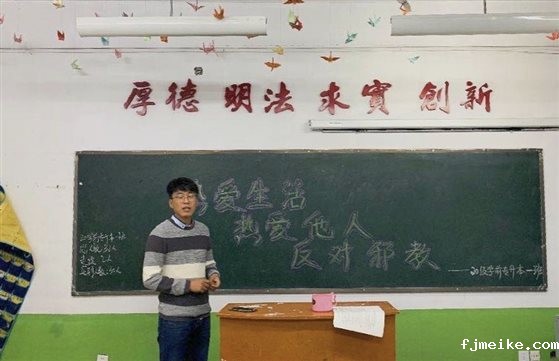 厚德 明法 求實 創新
热爱生活
热爱他人
反对邪教
——20级学前专升本一班
fjmeike.com